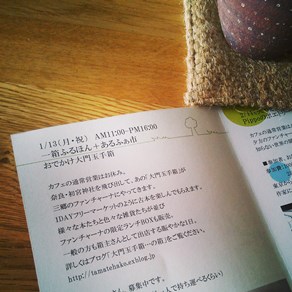 1/13(月・祝) AM11:00-PM16:00
一箱ふるほん+あるふぁ市
おでかけ大門玉手箱
カフェの通常営業はお休み。
奈良・初宮神社を飛び出して、あの「大門玉手箱」が
三郷のファンチャーナにやってきます。
1DAYフリーマーケットのようにお本を楽しんでもらえます。
様々な本たちと色々な雑貨たちが並び
ファンチャーナの限定ランチBOXも販売。
一般の方も箱主さんとして出店する賑やかな1日。
詳しくはブログ「大門玉手箱…の箱」をご覧ください。
http://tamatebako.exblog.jp
さん 募集中です。
人で持ち運べるくらい)
カフェの通常営